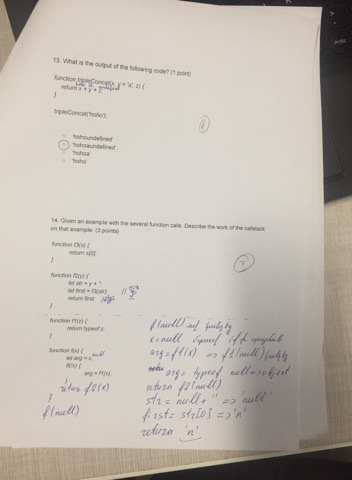 13. What is the output of the following code? (1 point)
function tripleConcat(x, y = 'a', z) {
return x + y + z;
}
tripleConcat('hoho');
'hohoundefined'
'hohoaundefined'
'hohoa'
'hoho'
14. Given an example with the several function calls. Describe the work of the callstack
on that example. (3 points)
function f3(s) {
return s[0];
}
function f2(y) {
let str = y + '';
let first = f3(str);
return first
}
function f1(z) {
return typeof z;
}
function f(x) {
let arg = x; null
if(x) {
arg = f1(x);
}
return f2(x)
}
f(null)
f(null)
x = null
arg = f1(x) => f1(null)
arg = typeof null => object
return f2(null)
str = null + '' => 'null'
first = str[0] => 'n'
return 'n'